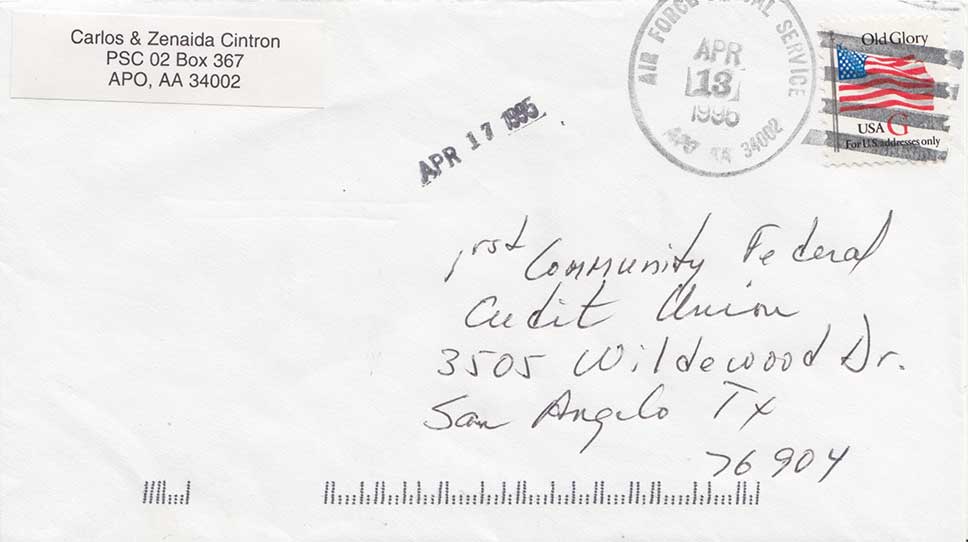 Carlos & Zenaida Cintron
PSC 02 Box 367
APO, AA 34002
AIR FORCE POSTAL SERVICE
APR
13
1995
APO AA 34002
Old Glory
USA G
For U.S. addresses only
APR 17 1995
1rst Community Federal
Credit Union
3505 Wildewood Dr.
San Angelo Tx
76904